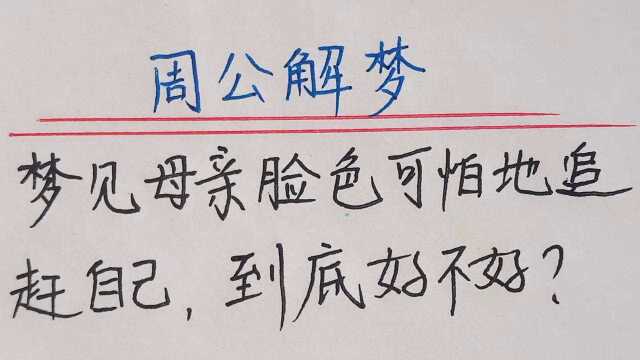 周公解梦
梦见母亲脸色可怕地追
赶自己，到底好不好？